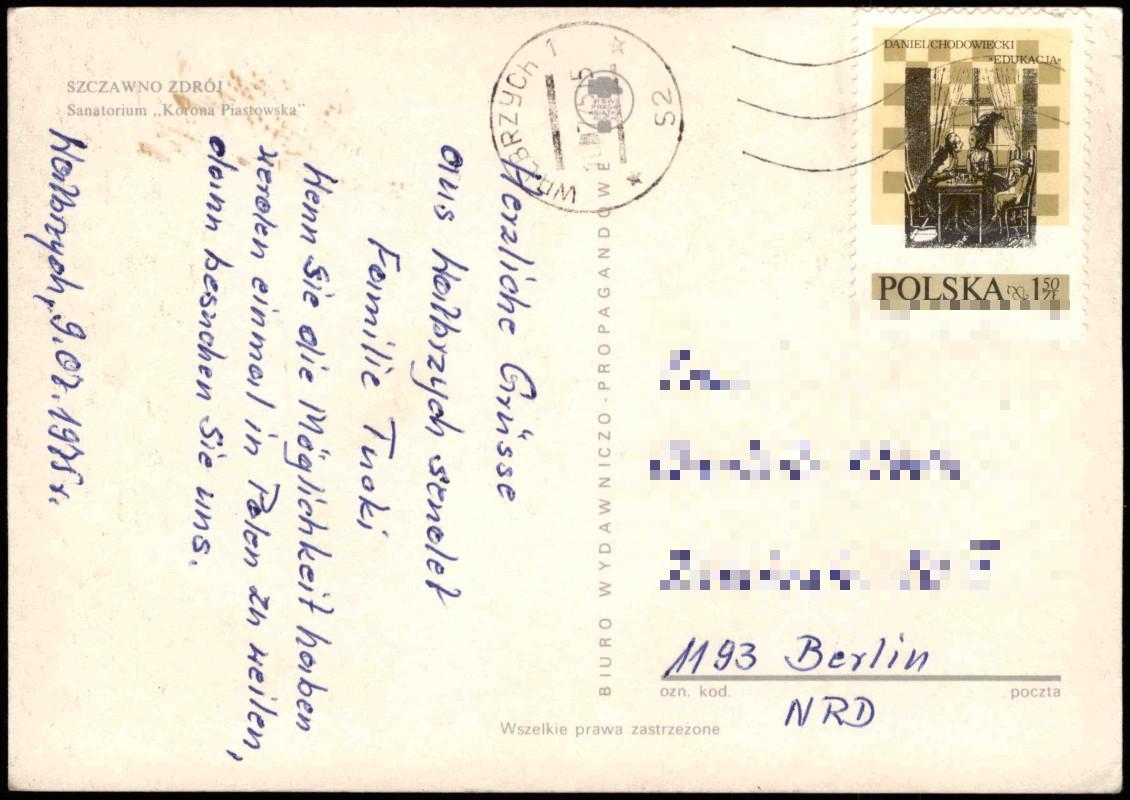 SZCZAWNO ZDRÓJ
Sanatorium „Korona Piastowska"
Herzliche Grüsse
aus Wałbrzych sendet
Familie Turki
Wenn Sie die Möglichkeit haben
werden einmal in Polen zu weilen,
dann besuchen Sie uns.
Wałbrzych, 9.07.1975 r.
BIURO WYDAWNICZO-PROPAGANDOWE
Wszelkie prawa zastrzeżone
WAŁBRZYCH 1
52
DANIEL CHODOWIECKI
"EDUKACJA"
POLSKA 1 50 ZŁ
1193 Berlin
ozn. kod. poczta
NRD